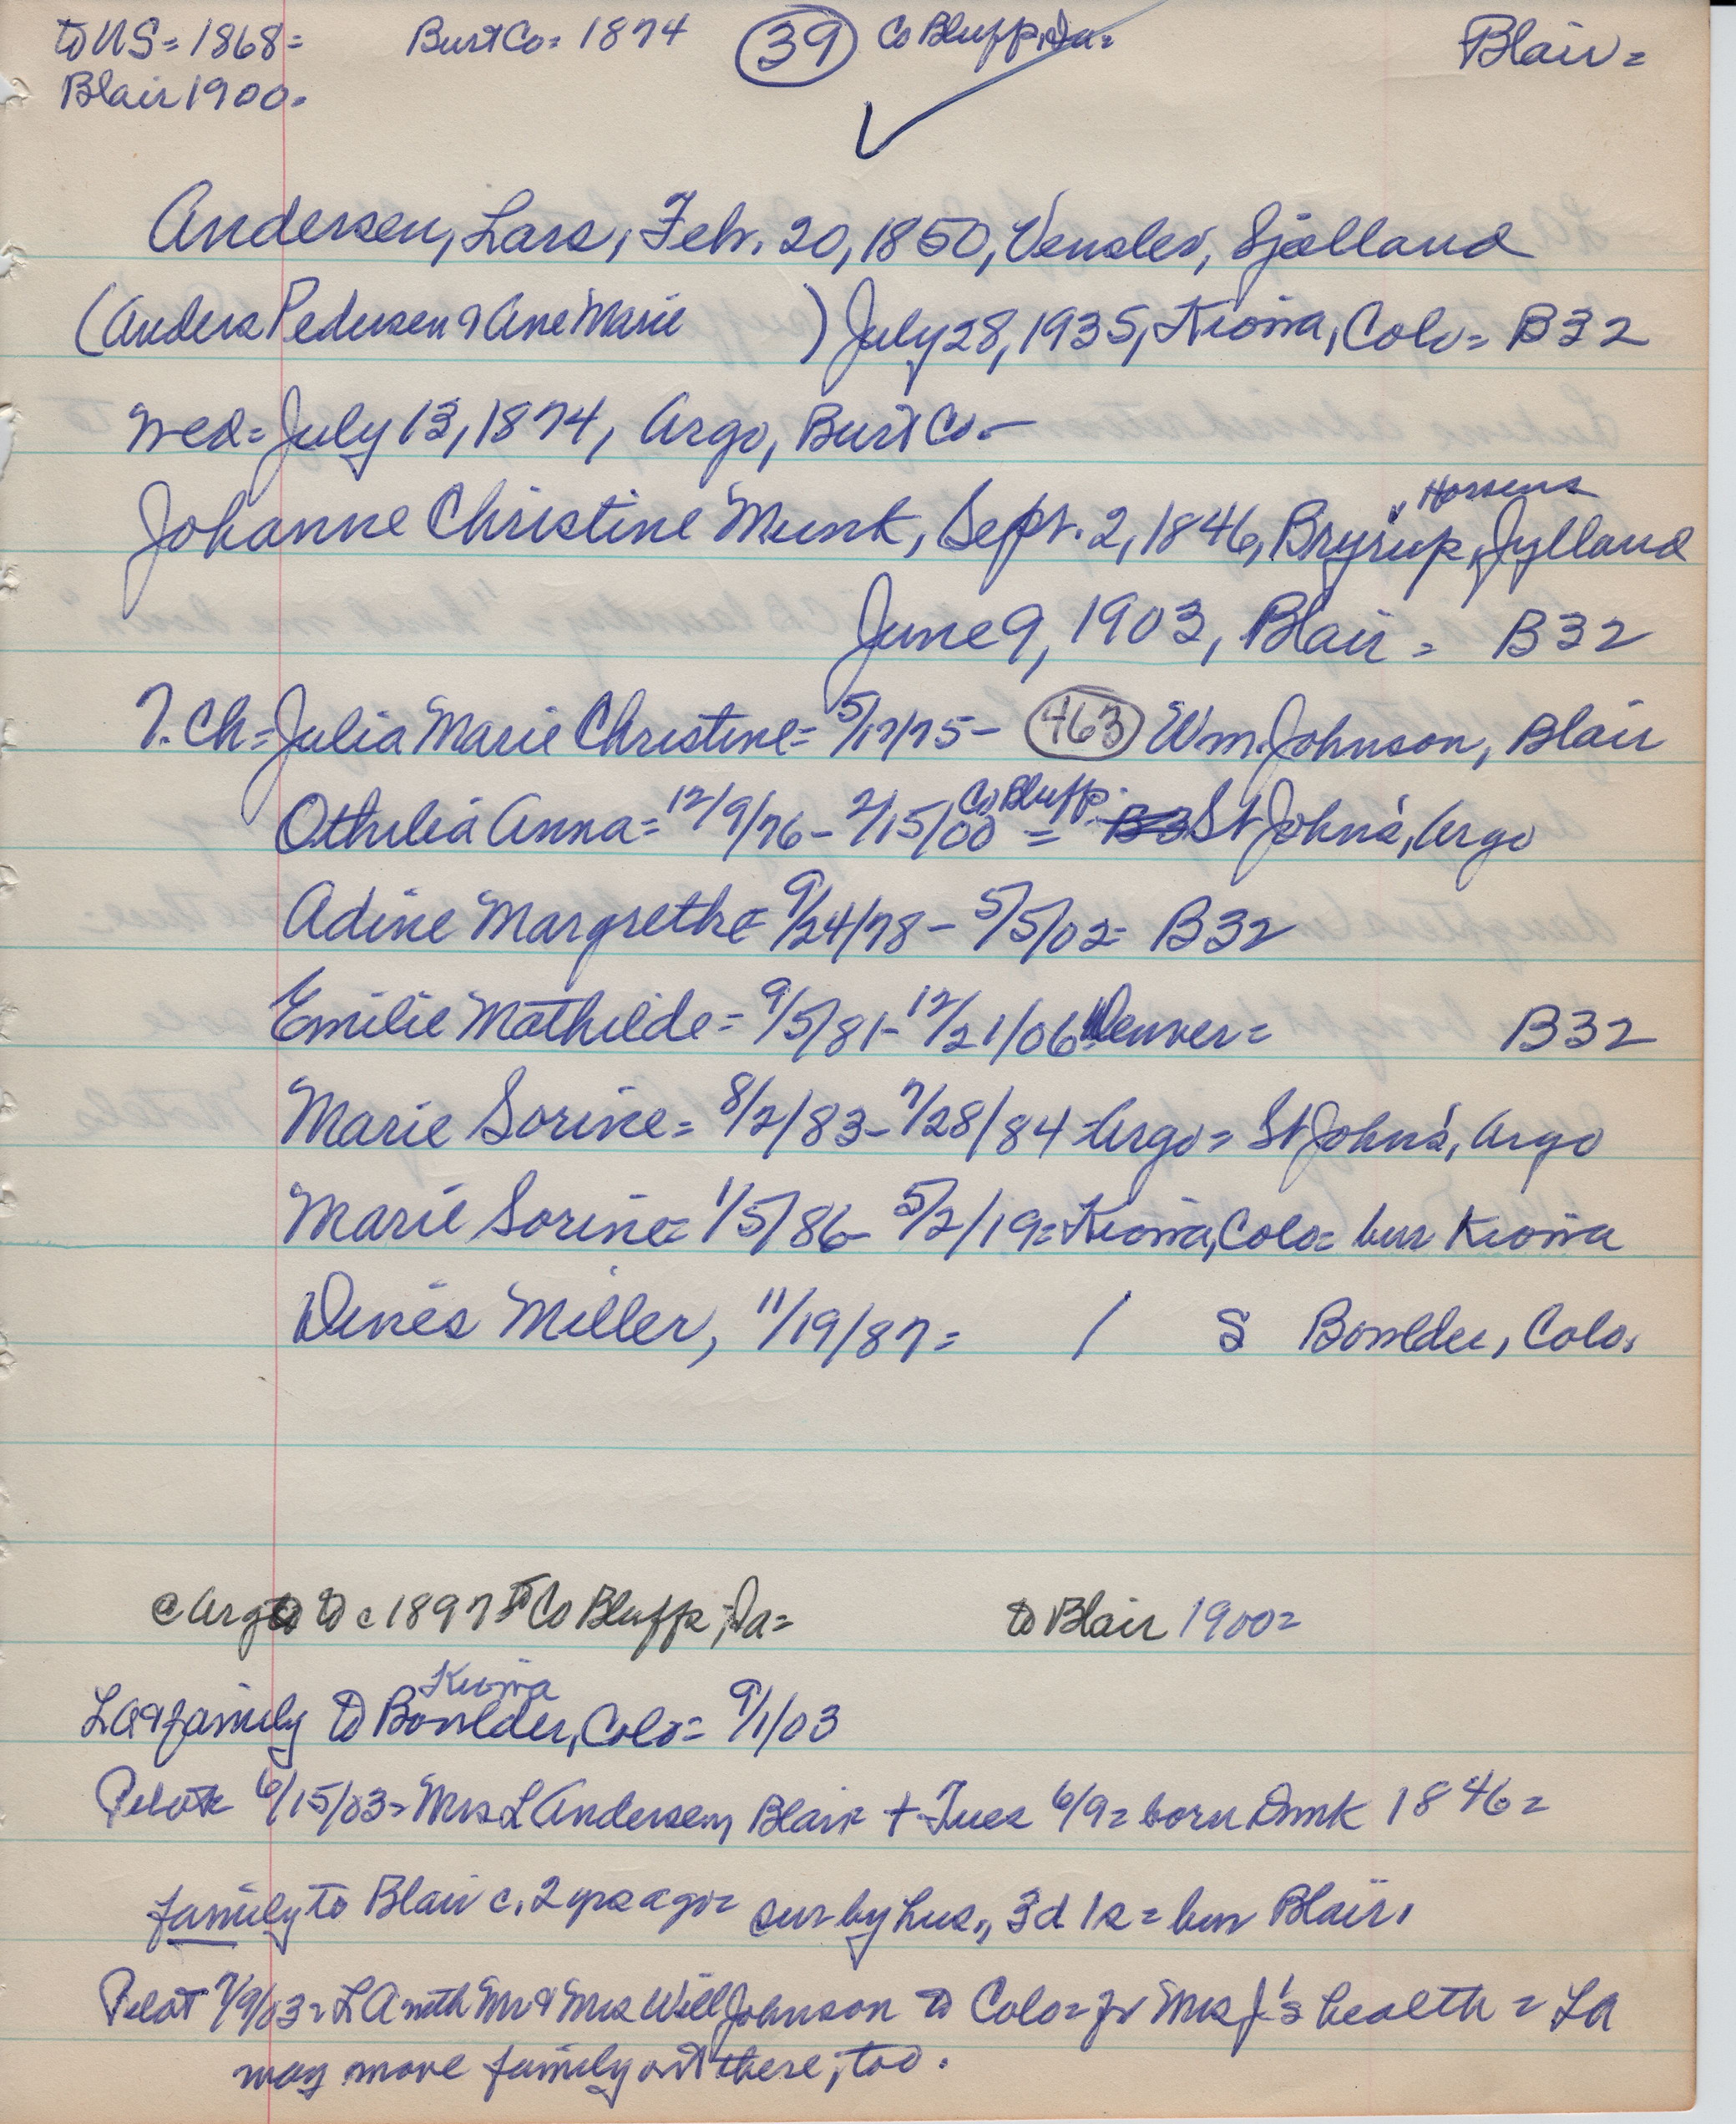 to US = 1868 = Burt Co = 1874 (39) Co Bluffs, Ia = Blair =
Blair 1900.
Andersen, Lars, Feb. 20, 1850, Venslev, Sjælland
(Anders Pedersen & Ane Marie ) July 28, 1935, Kiowa, Colo = B32
Wed = July 13, 1874, Argo, Burt Co. —
, Horsens
Johanne Christine Munk, Sept. 2, 1846, Bryrup, Jylland
June 9, 1903, Blair = B32
7. Ch = Julia Marie Christine = 5/17/75 - (463) Wm. Johnson, Blair
Othilia Anna = 12/9/76 - 2/15/00 Co Bluffs = St John's, Argo
Adine Margrethe = 9/24/78 - 5/5/02 = B32
Emilie Mathilde = 9/5/81 - 12/21/06 Denver = B32
Marie Sorine = 8/2/83 - 7/28/84 - Argo = St John's, Argo
Marie Sorine = 1/5/86 - 5/2/19 = Kiowa, Colo = bur Kiowa
Dines Miller, 11/19/87 = / S Boulder, Colo.
@ Argo to c 1897 to Co Bluffs, Ia = to Blair 1900 =
Kiowa
LA & family to Boulder, Colo = 9/1/03
Pilot 6/15/03 = Mrs L Andersen, Blair + Tues 6/9 = born Dmk 1846 =
family to Blair c. 2 yrs ago = sur by hus., 3 d 1 s = bur Blair.
Pilot 7/9/03 = LA with Mr & Mrs Will Johnson to Colo = for Mrs J's health = LA
may move family out there, too.